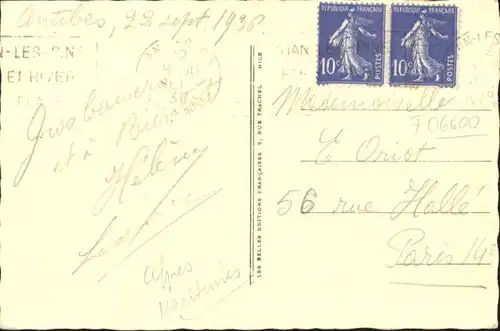 Antibes, 22 sept 1936
N-LES-PINS
ET HIVER
Gros baisers
et à
Hélène
Alpes
Maritimes
LES BELLES EDITIONS FRANÇAISES, 2, RUE TRACHEL NICE
REPUBLIQUE FRANÇAISE
10c
POSTES
REPUBLIQUE FRANÇAISE
10c
POSTES
Mademoiselle
F 06600
E. Oriot
56 rue Hallé
Paris 14e